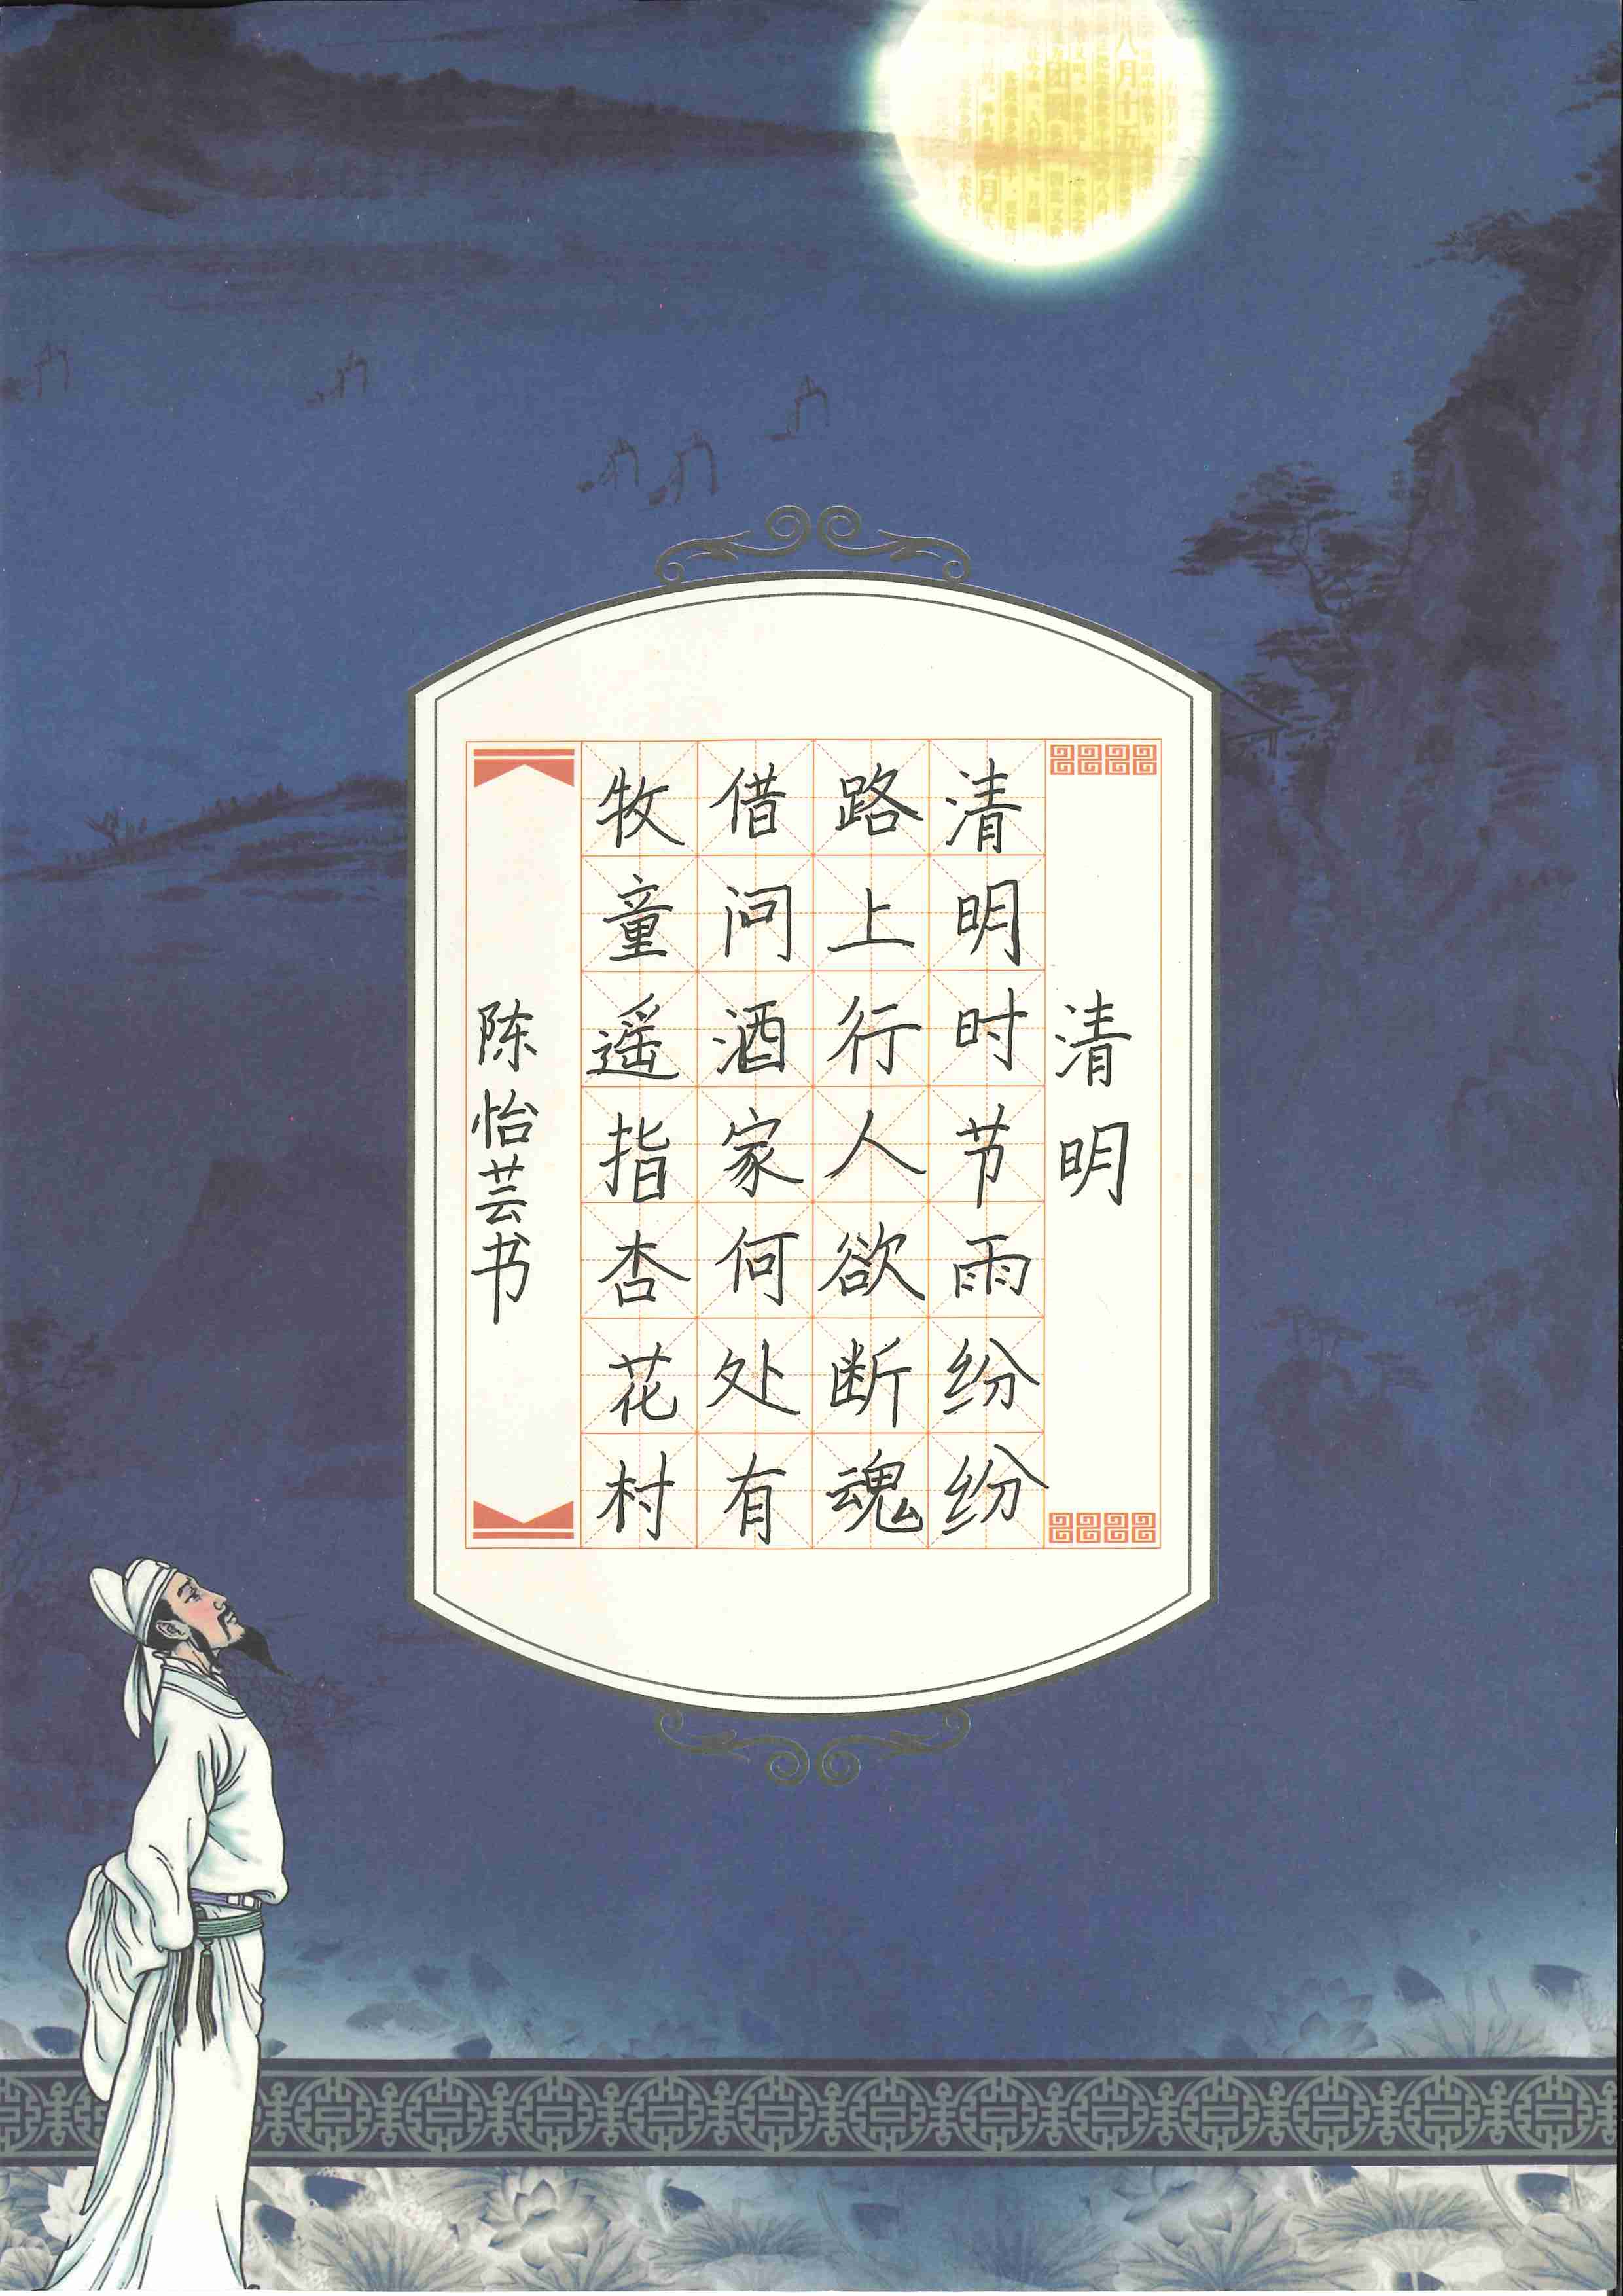 清明
清明时节雨纷纷
路上行人欲断魂
借问酒家何处有
牧童遥指杏花村
陈怡芸书
八月十五